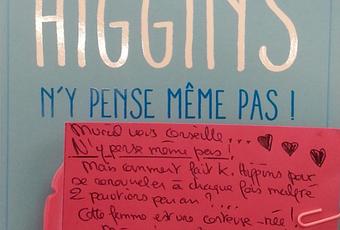 HIGGINS
N'Y PENSE MÊME PAS !
Muriel vous conseille...
N'y pense même pas !
Mais comment fait K. Higgins pour
se renouveler à chaque fois malgré
2 parutions par an ?....
Cette femme est une conteuse-née !